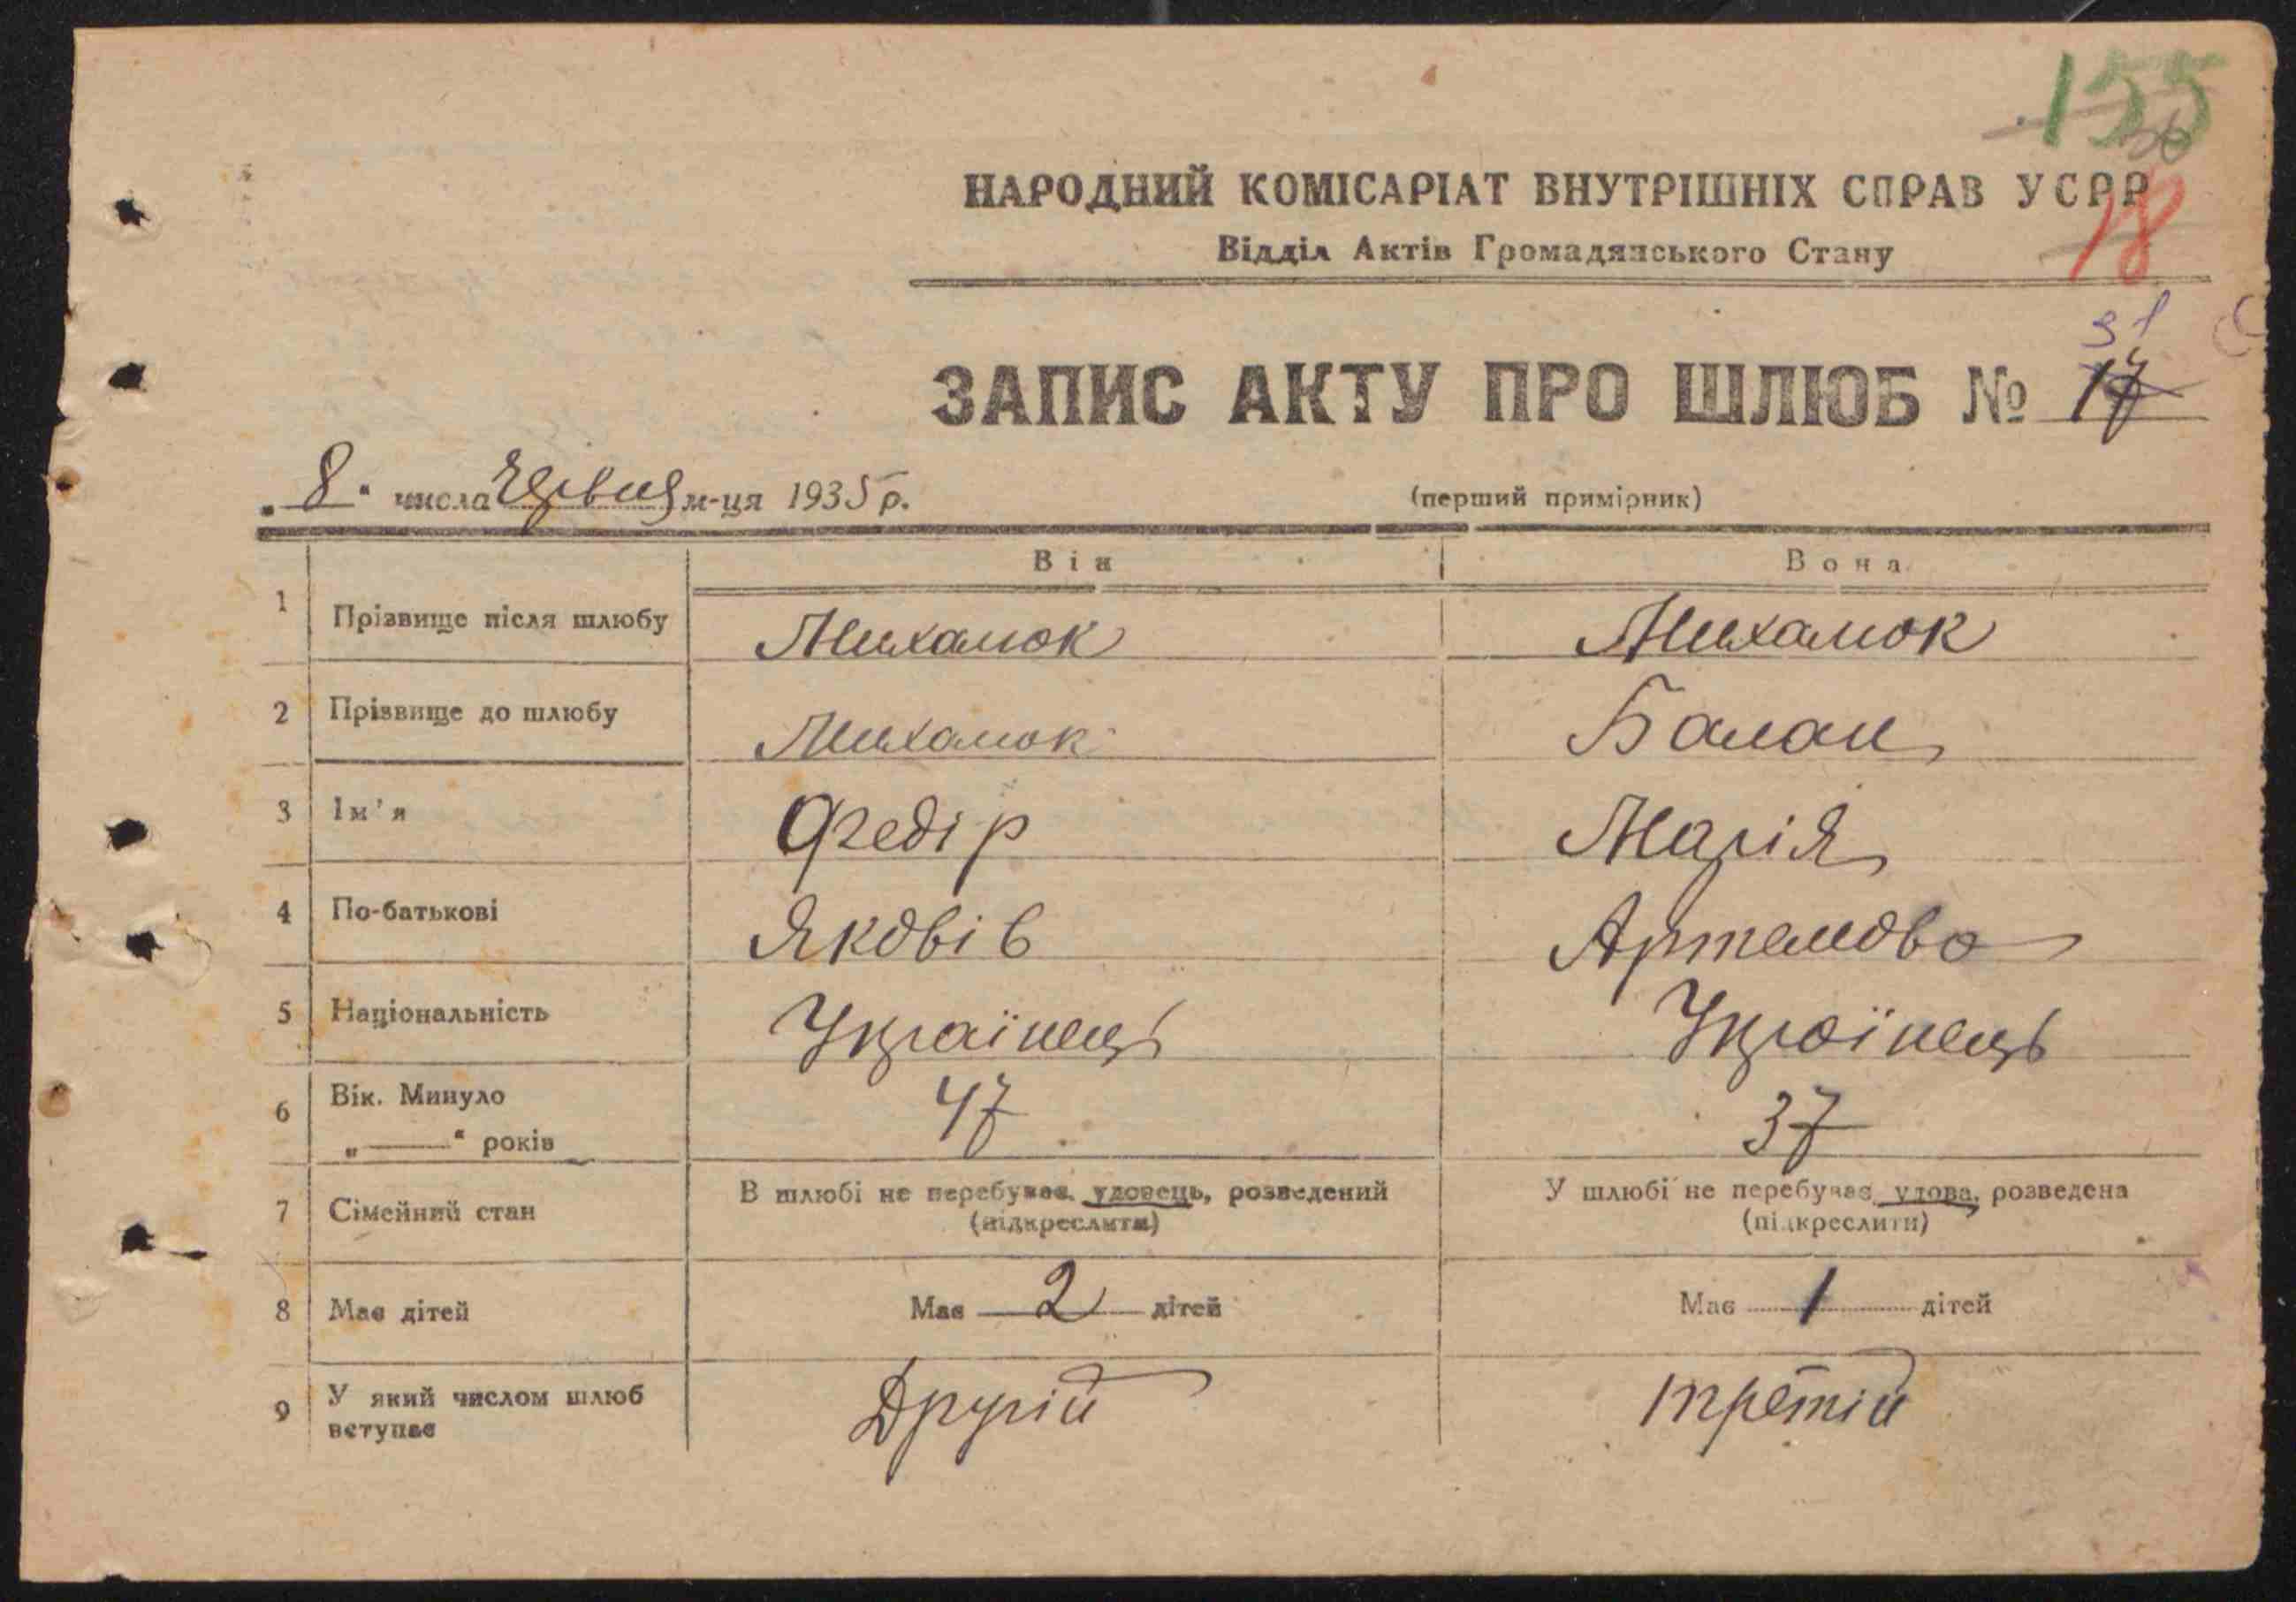 155
36
НАРОДНИЙ КОМІСАРІАТ ВНУТРІШНІХ СПРАВ УСРР
18
Відділ Актів Громадянського Стану
31
ЗАПИС АКТУ ПРО ШЛЮБ № 17
„8“ числа Червня м-ця 1935 р.
(перший примірник)
Він Вона
1 Прізвище після шлюбу Михалюк Михалюк
2 Прізвище до шлюбу Михалюк Балан
3 Ім'я Федір Марія
4 По-батькові Яковів Артемова
5 Національність Українець Українець
6 Вік. Минуло „——“ років 47 37
7 Сімейний стан В шлюбі не перебуває, удовець, розведений (підкреслити) У шлюбі не перебуває, удова, розведена (підкреслити)
8 Має дітей Має 2 дітей Має 1 дітей
9 У який числом шлюб вступає Другій третій